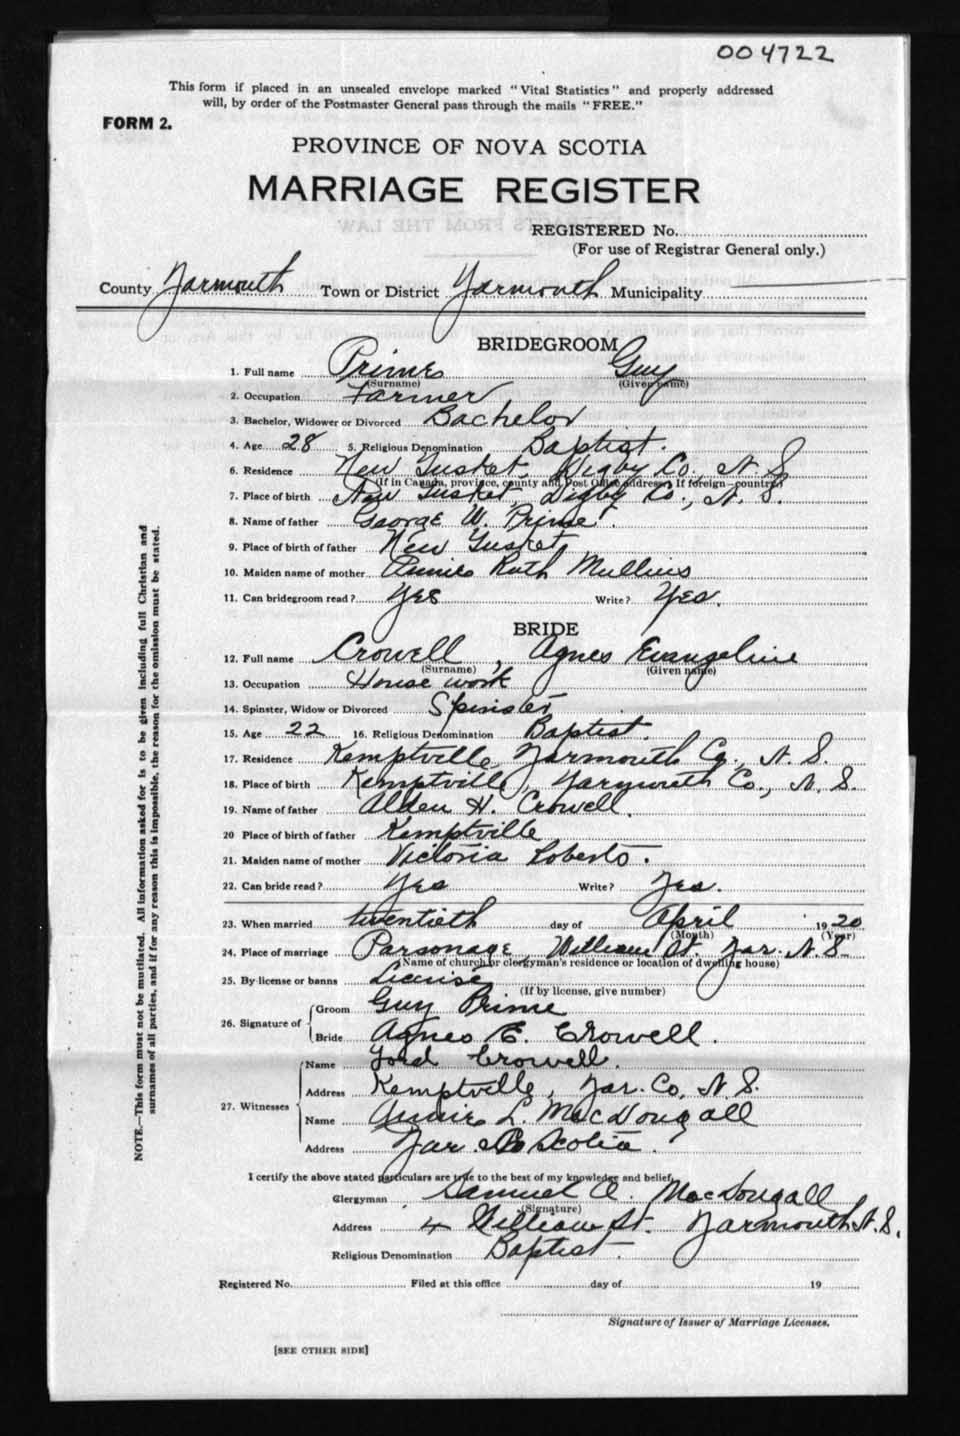 004722
This form if placed in an unsealed envelope marked "Vital Statistics" and properly addressed
will, by order of the Postmaster General pass through the mails "FREE."
FORM 2.
PROVINCE OF NOVA SCOTIA
MARRIAGE REGISTER
REGISTERED No.
(For use of Registrar General only.)
County Yarmouth Town or District Yarmouth Municipality
BRIDEGROOM
1. Full name Prime Guy
(Surname) (Given name)
2. Occupation Farmer
3. Bachelor, Widower or Divorced Bachelor
4. Age 28 5. Religious Denomination Baptist.
6. Residence New Tusket, Digby Co., N. S.
(If in Canada, province, county and Post Office address. If foreign—country)
7. Place of birth New Tusket, Digby Co., N. S.
8. Name of father George W. Prime.
9. Place of birth of father New Tusket
10. Maiden name of mother Annie Ruth Mullins
11. Can bridegroom read? Yes Write? Yes.
BRIDE
12. Full name Crowell, Agnes Evangeline
(Surname) (Given name)
13. Occupation House work
14. Spinster, Widow or Divorced Spinster
15. Age 22 16. Religious Denomination Baptist.
17. Residence Kemptville, Yarmouth Co., N. S.
18. Place of birth Kemptville, Yarmouth Co., N. S.
19. Name of father Alden H. Crowell.
20 Place of birth of father Kemptville
21. Maiden name of mother Victoria Roberts.
22. Can bride read? Yes Write? Yes.
23. When married twentieth day of April 1920
(Month) (Year)
24. Place of marriage Parsonage, William St. Yar. N. S.
(Name of church or clergyman's residence or location of dwelling house)
25. By license or banns License
(If by license, give number)
26. Signature of Groom Guy Prime
Bride Agnes E. Crowell.
27. Witnesses Name Crowell.
Address Kemptville, Yar. Co, N. S.
Name Annie L. MacDougall
Address Yar. Scotia.
I certify the above stated particulars are true to the best of my knowledge and belief,
Clergyman Samuel A. MacDougall
(Signature)
Address 4 William St. Yarmouth N. S.
Religious Denomination Baptist.
Registered No. Filed at this office day of 19
Signature of Issuer of Marriage Licenses.
[SEE OTHER SIDE]
NOTE.—This form must not be mutilated. All information asked for is to be given including full Christian and
surnames of all parties, and if for any reason this is impossible, the reason for the omission must be stated.